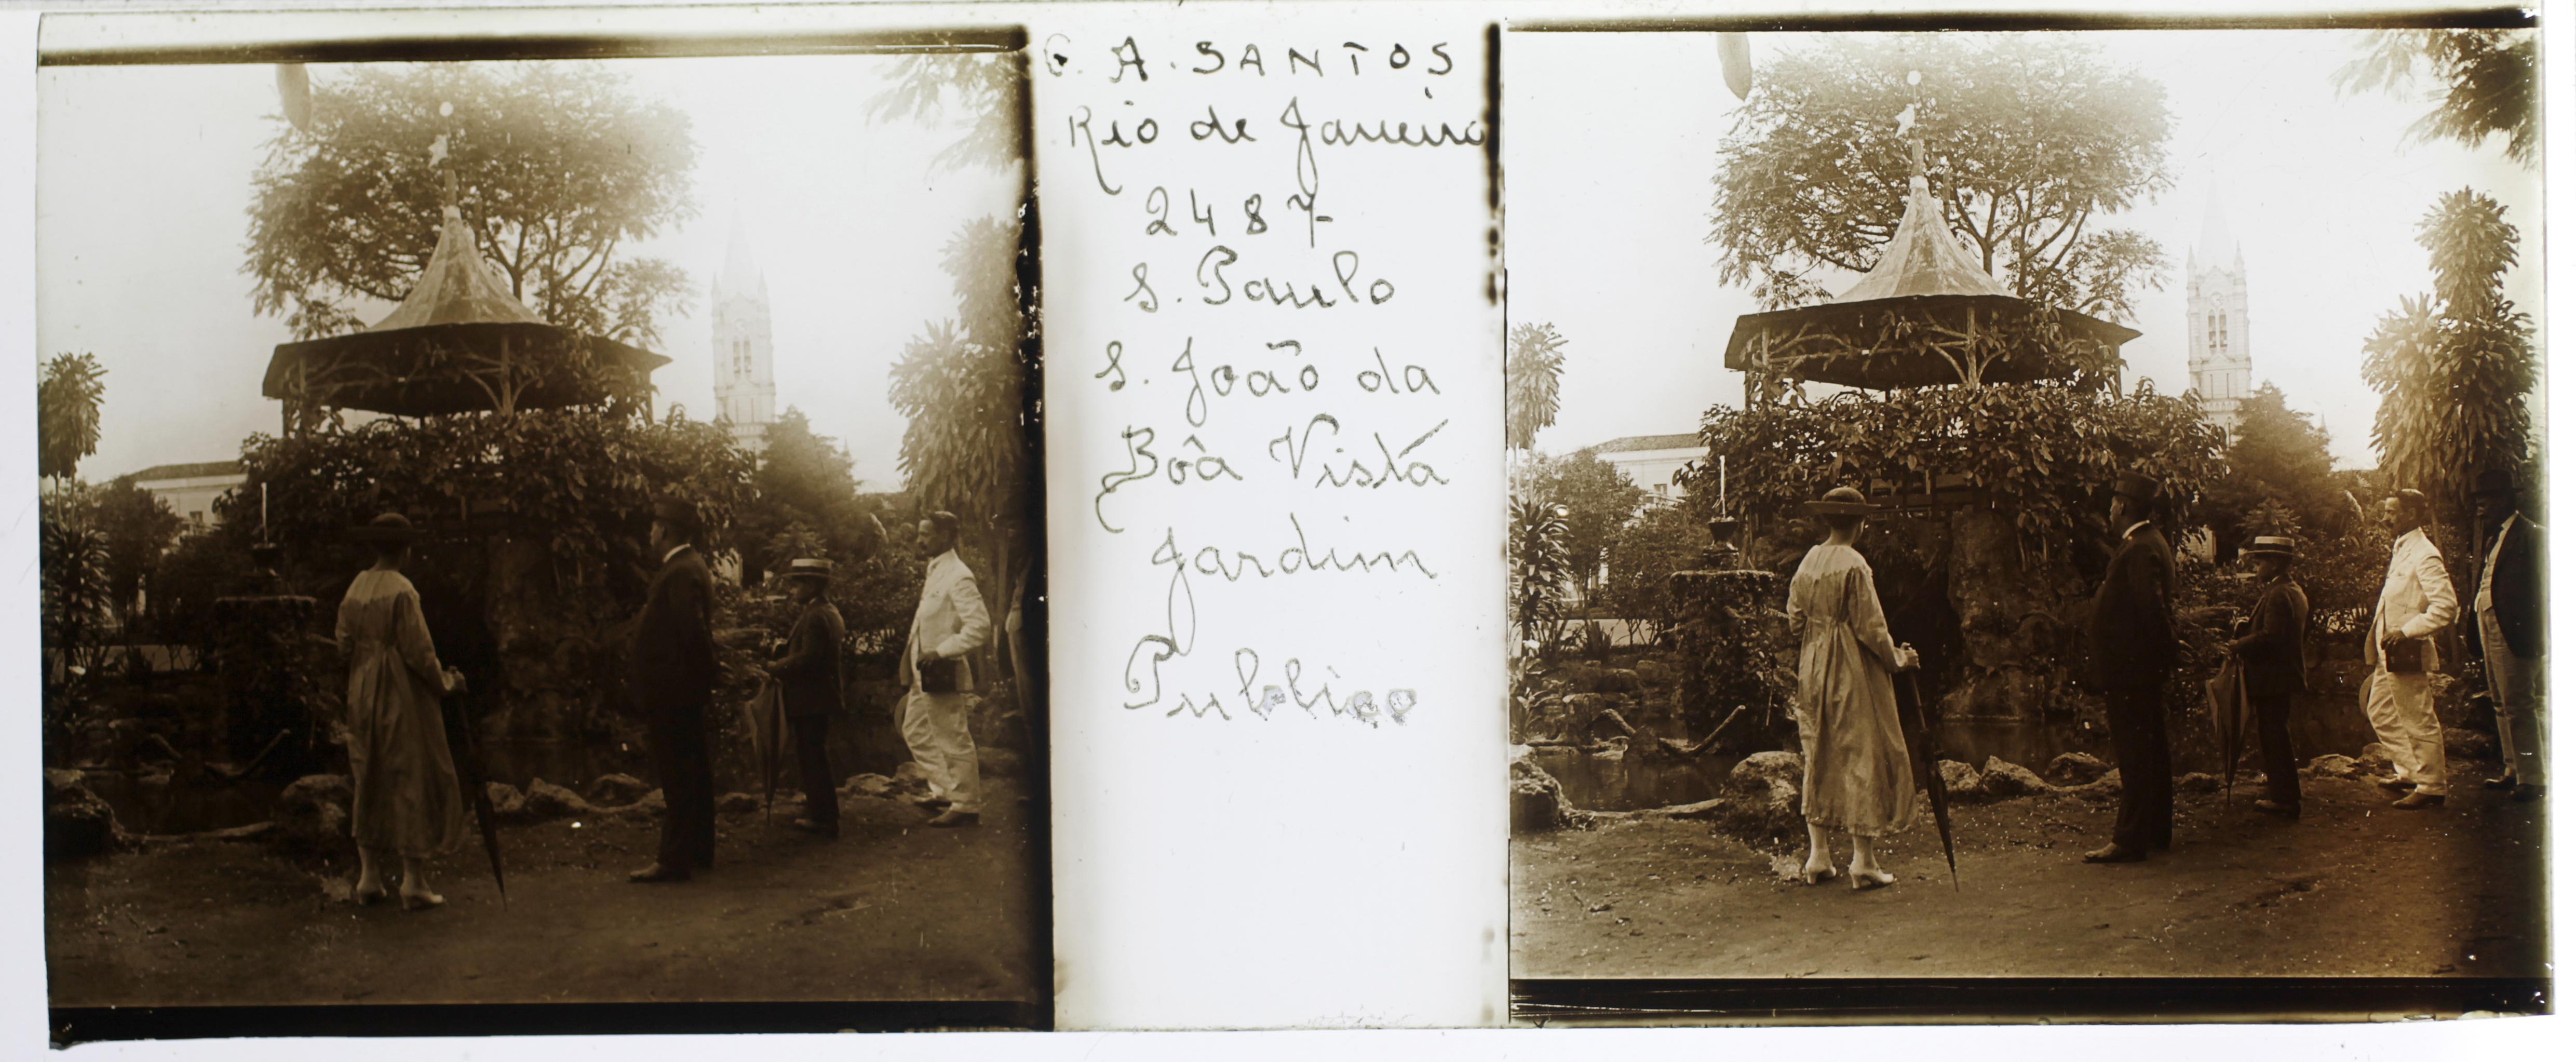 G. A. SANTOS
Rio de Janeiro
2487
S. Paulo
S. João da
Bôa Vista
Jardim
Publico